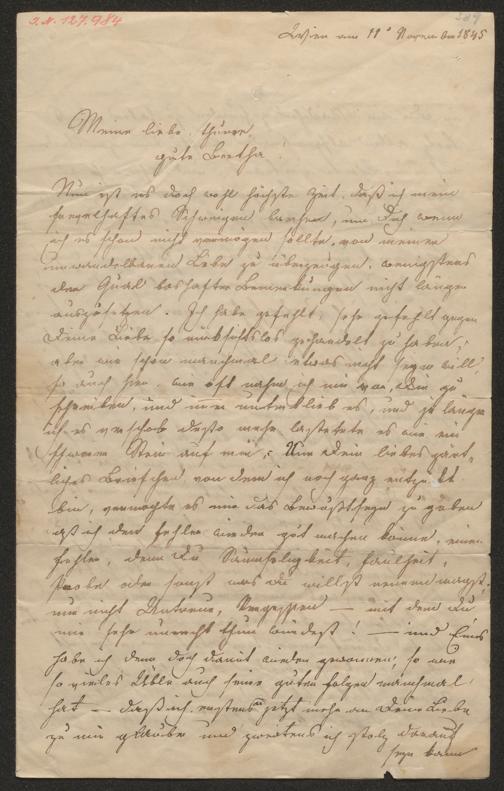 I.N. 127.984
589
Wien am 11t Novem̅ber 1845
Meine liebe, theure,
gute Bertha!
Nun ist es doch wohl höchste Zeit, daß ich mein
Schweigen breche, um Dich wenn
ich es schon nicht vermögen sollte, von meiner
unwandelbaren Liebe zu überzeugen, wenigstens
der Qual boshafter Bemerkungen nicht länger
auszusetzen. Ich habe gefehlt, sehr gefehlt gegen
Deine Liebe so rücksichtslos gehandelt zu haben,
aber wie schon manchmal etwas nicht seyn will,
so auch hier. Wie oft nahm ich mir vor, Dir zu
schreiben, und im̅er unterblieb es, und je länger
ich es verschob desto mehr lastete es wie ein
schwerer Stein auf mir. Nur Dein liebes zärt-
liches Briefchen von dem ich noch ganz entzückt
bin, vermochte es mir das Bewußtseyn zu geben
daß ich den Fehler wieder gut machen könne, einen
Fehler, den Du Saumseligkeit, Faulheit,
oder sonst was Du willst nennen magst,
nur nicht Untreue, Vergessen — mit dem Du
mir sehr unrecht thun würdest! — und Eines
habe ich denn doch damit wieder gewonnen, so wie
so vieles Üble auch seine guten Folgen manchmal
hat — daß ich erstens jetzt mehr an Deine Liebe
zu mir glaube und zweitens ich stolz darauf
seyn kann